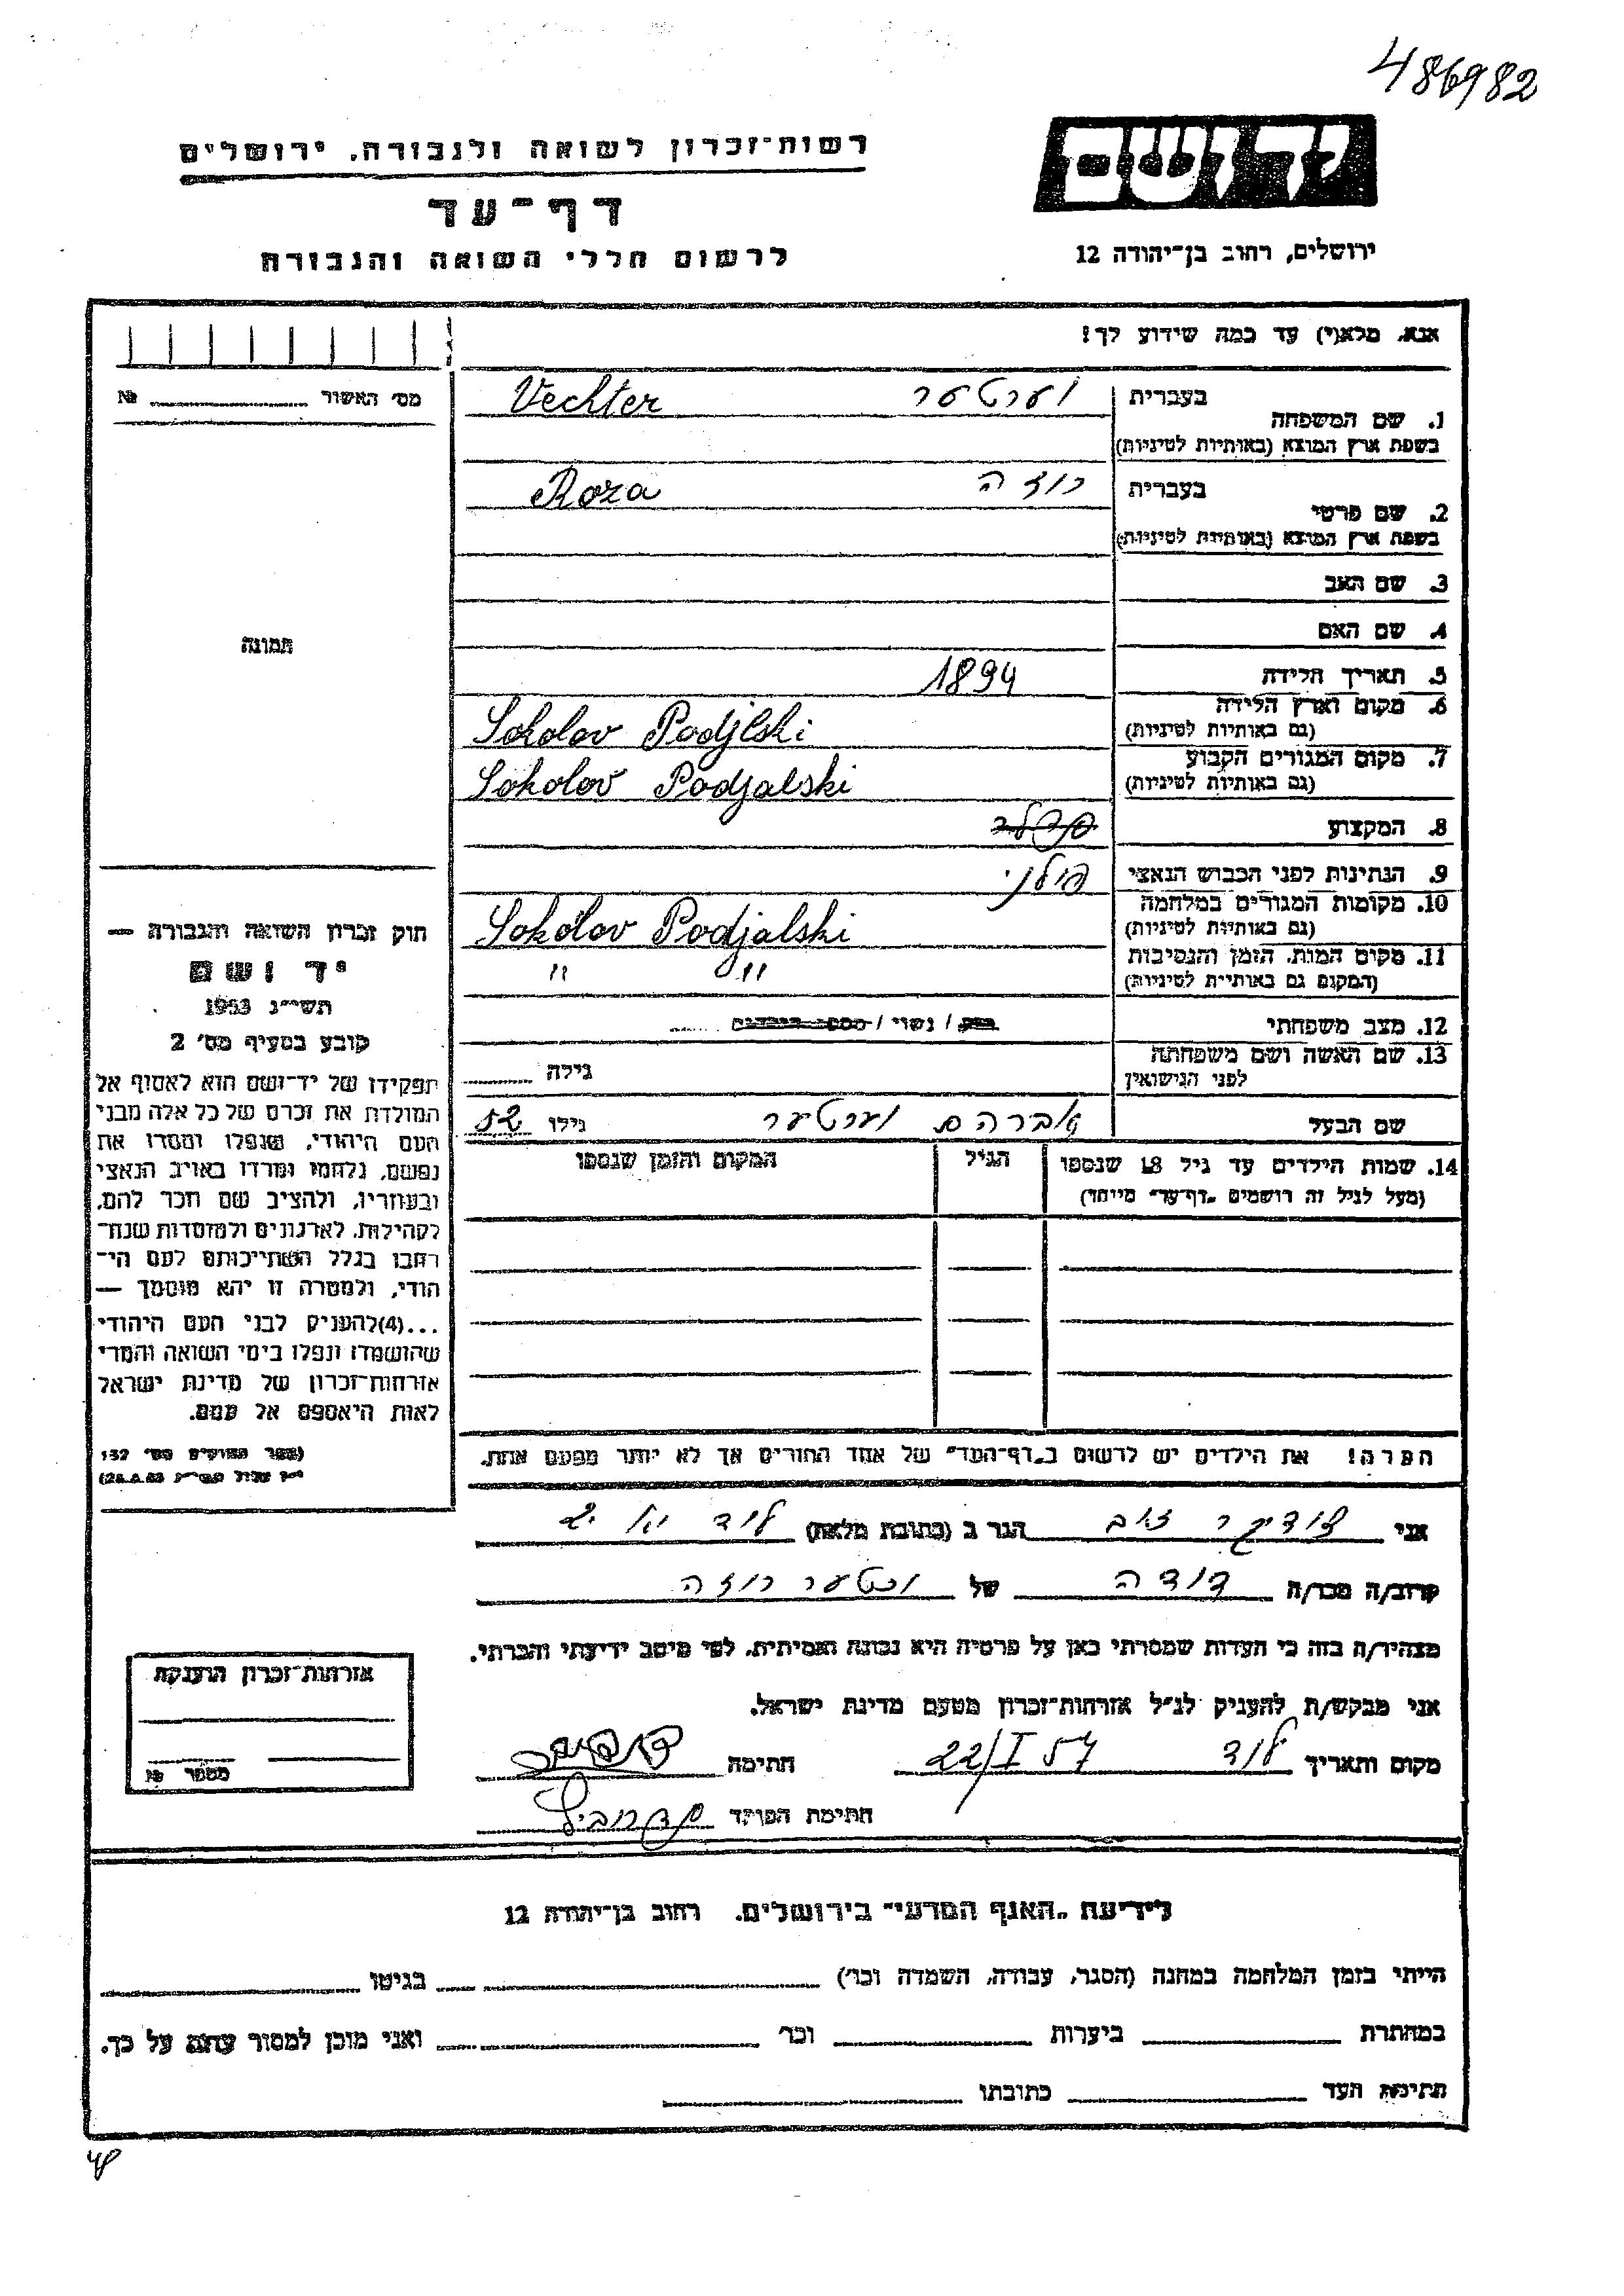 486982
יד ושם
ירושלים, רחוב בן־יהודה 12
רשות־זכרון לשואה ולגבורה, ירושלים
דף־עד
לרשום חללי השואה והגבורה
אנא, מלא(י) עד כמה שידוע לך!
1. שם המשפחה
בעברית
וערטער Vechter
בשפת ארץ המוצא (באותיות לטיניות)
2. שם פרטי
בעברית
רוזה Roza
בשפת ארץ המוצא (באותיות לטיניות)
3. שם האב
4. שם האם
5. תאריך הלידה 1894
6. מקום וארץ הלידה
(גם באותיות לטיניות)
Sokolov Podjlski
7. מקום המגורים הקבוע
(גם באותיות לטיניות)
Sokolov Podjalski
8. המקצוע
9. הנתינות לפני הכבוש הנאצי פולני
10. מקומות המגורים במלחמה
(גם באותיות לטיניות)
Sokolov Podjalski
11. מקום המות, הזמן והנסיבות
(המקום גם באותיות לטיניות)
" "
12. מצב משפחתי רווק / נשוי / מספר הילדים
13. שם האשה ושם משפחתה
לפני הנישואין
גילה
שם הבעל אברהם וערטער גילו 52
14. שמות הילדים עד גיל 18 שנספו
(מעל לגיל זה רושמים "דף־עד" מיוחד)
הגיל
המקום והזמן שנספו
הערה! את הילדים יש לרשום ב"דף־העד" של אחד ההורים אך לא יותר מפעם אחת.
מס׳ האשור № 
תמונה
חוק זכרון השואה והגבורה —
יד ושם
תשי״ג 1953
קובע בסעיף מס׳ 2
תפקידו של יד־ושם הוא לאסוף אל
המולדת את זכרם של כל אלה מבני
העם היהודי, שנפלו ומסרו את
נפשם, נלחמו ומרדו באויב הנאצי
ובעוזריו, ולהציב שם וזכר להם,
לקהילות, לארגונים ולמוסדות שנח־
רבו בגלל השתייכותם לעם הי־
הודי, ולמטרה זו יהא מוסמך —
...(4)להעניק לבני העם היהודי
שהושמדו ונפלו בימי השואה והמרי
אזרחות־זכרון של מדינת ישראל
לאות היאספם אל עמם.
(ספר החוקים מס׳ 132
אני הגר ב (כתובת מלאה) לוד
קרוב/ה מכר/ה דודה של וכטער רוזה
מצהיר/ה בזה כי העדות שמסרתי כאן על פרטיה היא נכונה ואמיתית, לפי מיטב ידיעתי והכרתי.
אני מבקש/ת להעניק לנ״ל אזרחות־זכרון מטעם מדינת ישראל.
מקום ותאריך לוד 22/I 57 חתימה
חתימת הפוקד
אזרחות־זכרון הוענקה
מספר №
לידיעת "האגף המדעי" בירושלים, רחוב בן־יהודה 12
הייתי בזמן המלחמה במחנה (הסגר, עבודה, השמדה וכו׳) בגיטו
במחתרת ביערות וכו׳ ואני מוכן למסור עדות על כך.
חתימת העד כתובתו